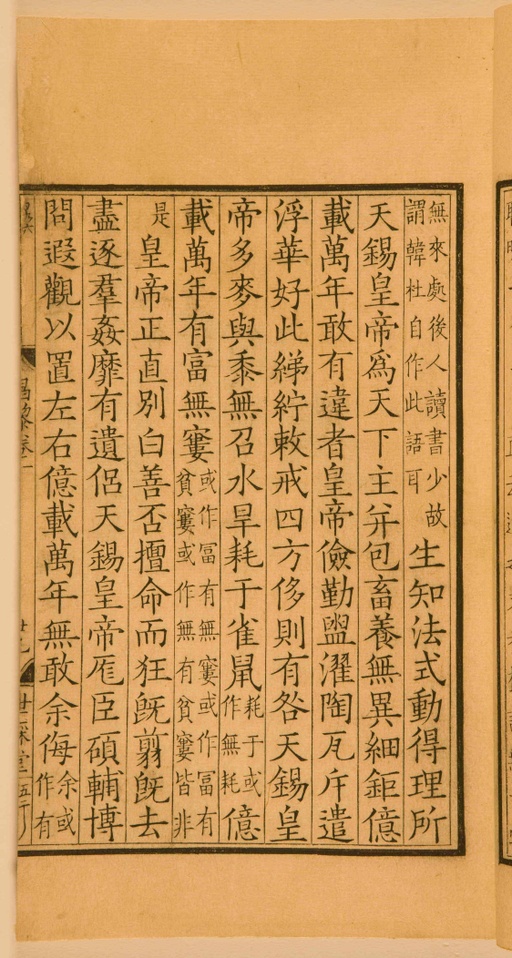 無來處後人讀書少故
謂韓杜自作此語耳
生知法式動得理所
天錫皇帝爲天下主并包畜養無異細鉅億
載萬年敢有違者皇帝儉勤盥濯陶瓦斥遣
浮華好此綈紵敕戒四方侈則有咎天錫皇
帝多麥與黍無召水旱耗于雀鼠
耗于或
作無耗
億
載萬年有富無窶
或作冨有無窶或作冨有
貧窶或作無有貧窶皆非
是
皇帝正直別白善否擅命而狂旣翦旣去
盡逐羣姦靡有遺侶天錫皇帝厖臣碩輔博
問遐觀以置左右億載萬年無敢余侮
余或
作有